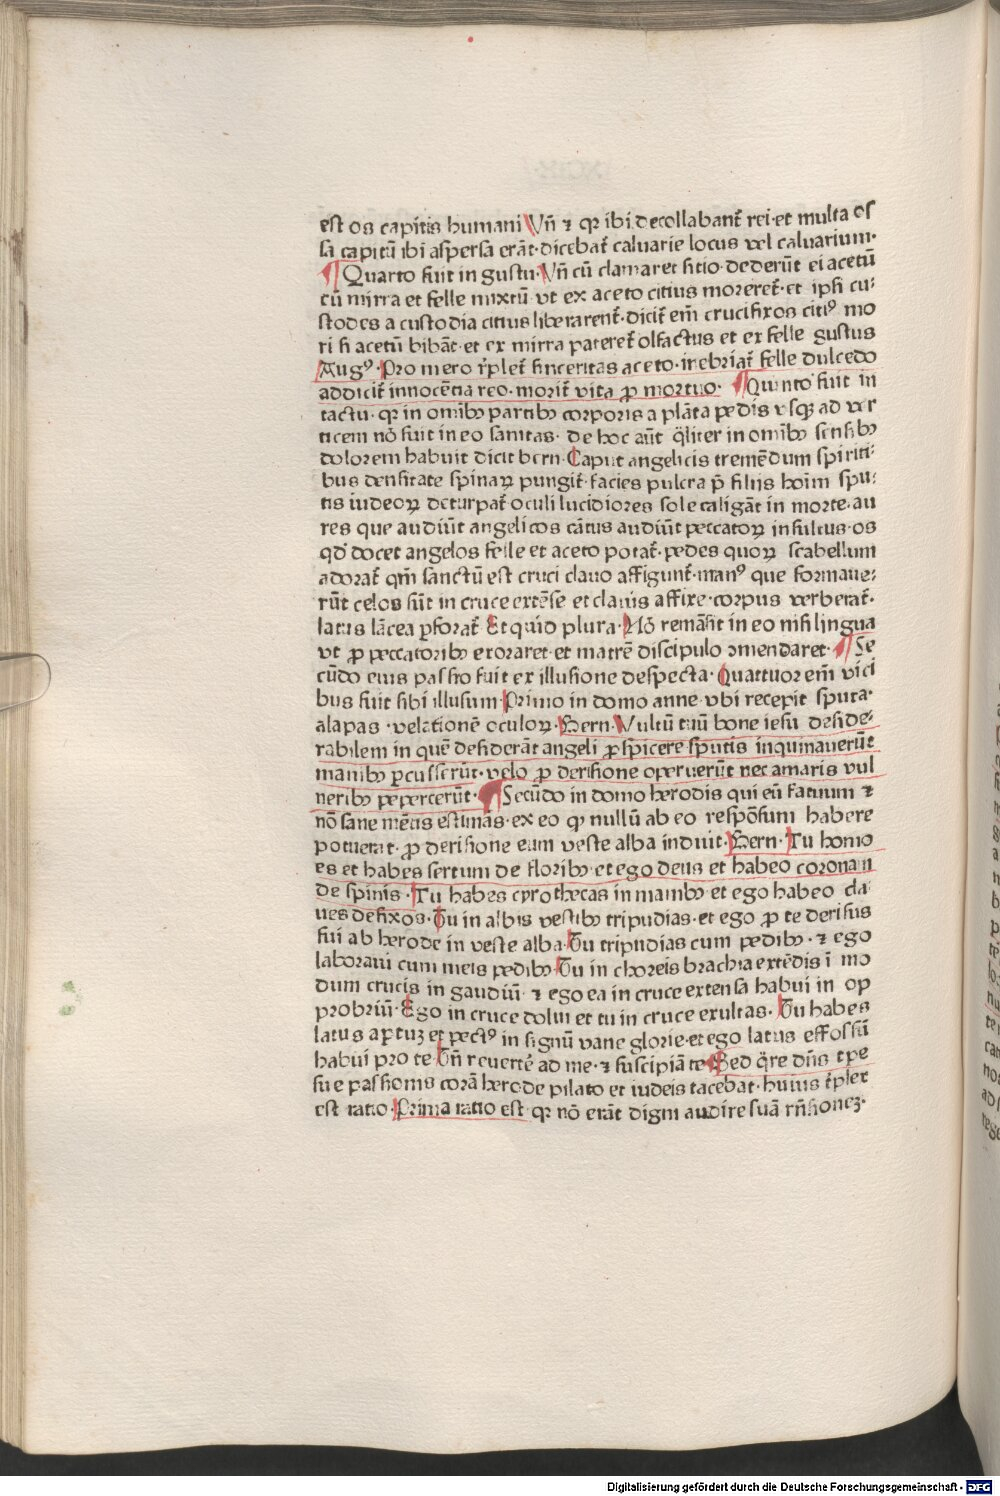 est os capitis humani Vn̄ ⁊ qꝛ ibi decollabant᷑ rei·et multa os
sa capitū ibi aspersa erāt·dicebat᷑ caluarie locus vel caluarium·
¶ Quarto fuit in gustu·Vn̄ cū clamaret sitio·dederūt ei acetū
cū mirra et felle mixtū·vt ex aceto citius moreret᷑·et ipsi cu⸗
stodes a custodia citius liberarent᷑·dicit᷑ em̄ crucifixos citiꝰ mo
ri si acetū bibāt·et ex mirra pateret᷑ olfactus et ex felle gustus
Augꝰ·Pro mero r̄plet᷑ sinceritas aceto·inebriat᷑ felle dulcedo
addicit᷑ innocētia reo·morit᷑ vita ꝓ mortuo· ¶ Quinto fuit in
tactu·qꝛ in omībꝫ partibꝫ corporis a plāta pedis vsqꝫ ad ver
ticem nō fuit in eo sanitas· de hoc aūt q̄liter in omībꝫ sensibꝫ
dolorem habuit dicit bern·Caput angelicis tremēdum spiriti⸗
bus densitate spinaꝝ pungit᷑·facies pulcra p̄ filijs hoīm spu⸗
tis iudeoꝝ deturpat᷑ oculi lucidiores sole caligāt in morte·au
res que audiūt angelicos cātus audiūt peccatoꝝ insultus·os
qd̄ docet angelos felle et aceto potat᷑·pedes quoꝝ scabellum
adorat᷑ qm̄ sanctū est cruci clauo affigunt᷑·manꝰ que formaue⸗
rūt celos sūt in cruce extēse et clauis affixe·corpus verberat᷑·
latus lācea ꝑforat᷑ Et quid plura·Nō remāsit in eo nisi lingua
vt ꝓ peccatoribꝫ exoraret·et matrē discipulo ꝯmendaret· ¶ Se
cūdo eius passio fuit ex illusione despecta·Quattuor em̄ vici
bus fuit sibi illusum·Primo in domo anne·vbi recepit sputa·
alapas·velationē oculoꝝ·Bern·Vultū tuū bone iesu deside⸗
rabilem in quē desiderāt angeli ꝓspicere sputis inquinauerūt
manibꝫ ꝑcusserūt·velo ꝓ derisione operuerūt nec amaris vul
neribꝫ pepercerūt· ¶ Secūdo in domo herodis qui eū fatuum ⁊
nō sane mētis estimās·ex eo qꝫ nullū ab eo respōsum habere
potuerat·ꝓ derisione eum veste alba induit·Bern·Tu homo
es et habes sertum de floribꝫ·et ego deus et habeo coronam
de spinis·Tu habes cyrothecas in manibꝫ et ego habeo cla
ues defixos·Tu in albis vestibꝫ tripudias·et ego ꝓ te derisus
fui ab herode in veste alba·Tu tripudias cum pedibꝫ·⁊ ego
laboraui cum meis pedibꝫ·Tu in choreis brachia extēdis ī mo
dum crucis in gaudiū· ⁊ ego ea in cruce extensa habui in op
probriū·Ego in cruce dolui et tu in cruce exultas·Tu habes
latus aꝑtuꝫ et pectꝰ in signū vane glorie·et ego latus effossū
habui pro te·Vn̄ reuerte᷑ ad me·⁊ suscipiā te ¶ Sed q̄re dn̄s tꝑe
sue passionis corā herode pilato et iudeis tacebat·huius t᷑plex
est ratio·Prima ratio est·qꝛ nō erāt digni audire suā rn̄sioneꝫ·
Digitalisierung gefördert durch die Deutsche Forschungsgemeinschaft · DFG